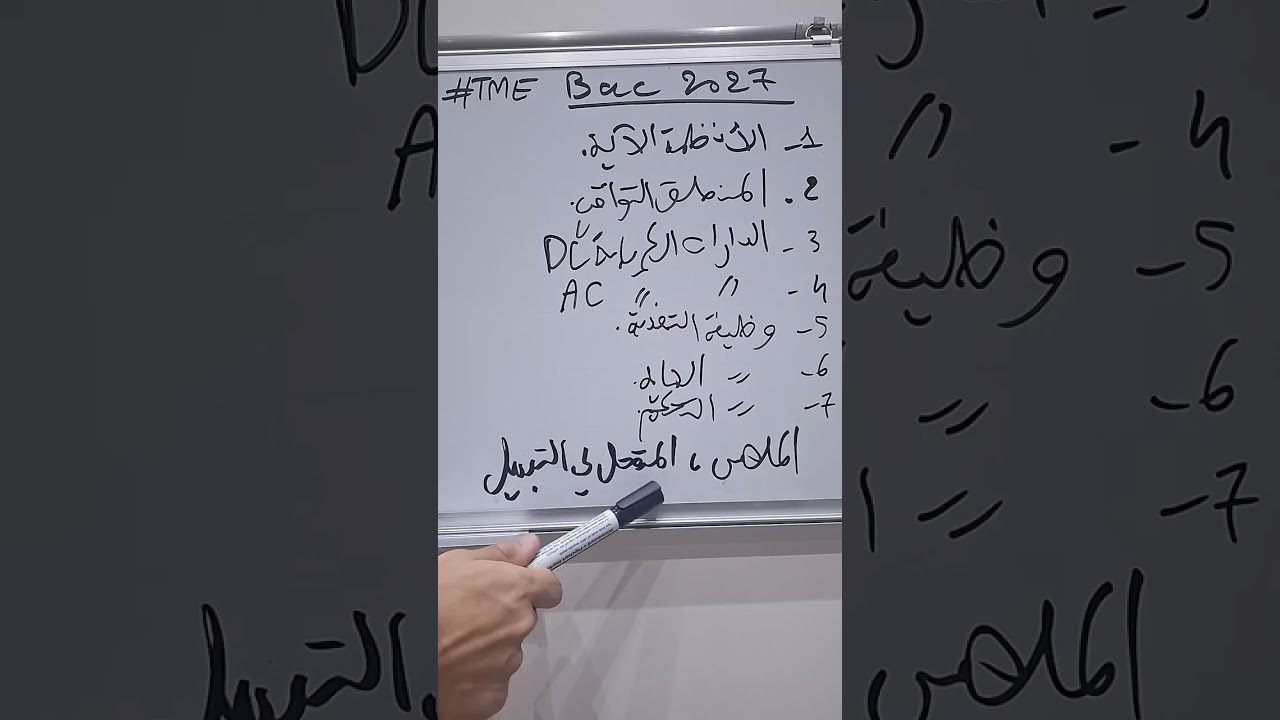 #TME Bac 2027
1- الأنظمة الآلية.
2. المنطق التواقتي.
3- الدارات الكهربائية DC
4- " " AC
5- وظيفة التغذية.
6- "
7- " التحكم.
الملخص، في التسجيل